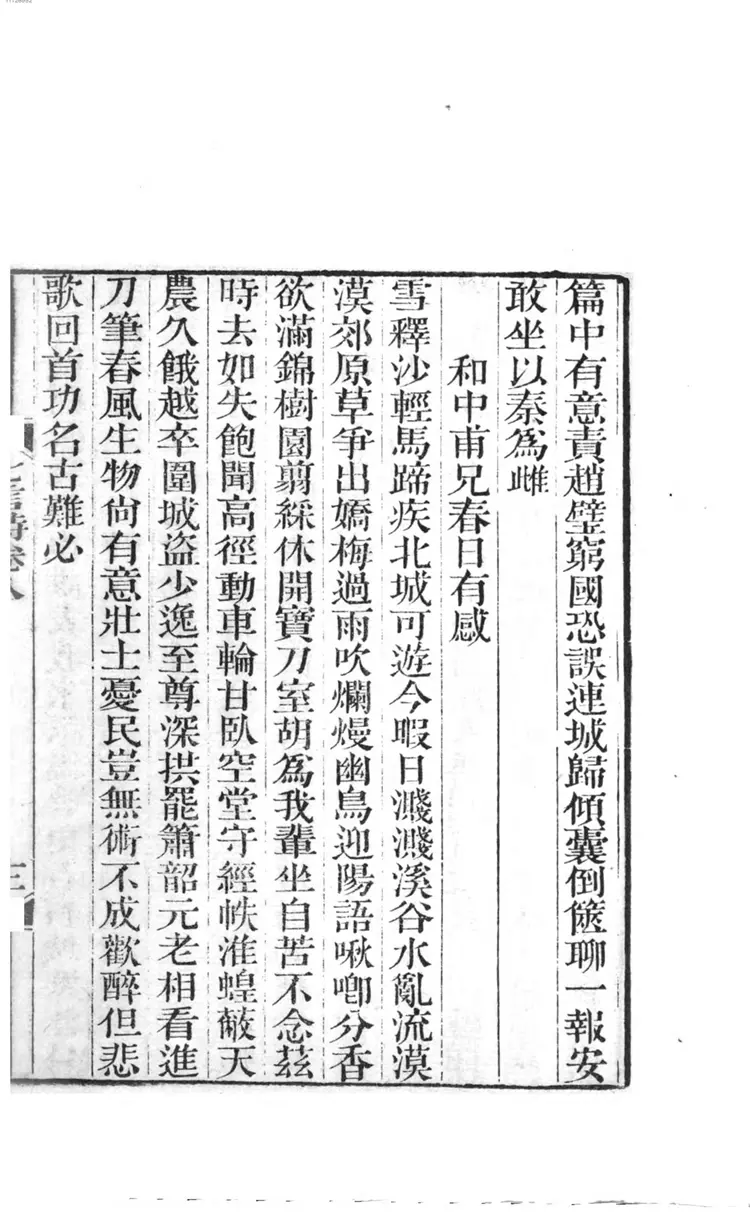 篇中有意責趙璧窮國恐誤連城歸傾囊倒篋聊一報安
敢坐以秦為雌
和中甫兄春日有感
雪釋沙輕馬蹄疾北城可遊今暇日濺濺溪谷水亂流漠
漠郊原草爭出嬌梅過雨吹爛熳幽鳥迎陽語啾喞分香
欲滿錦樹園翦綵休開寶刀室胡為我輩坐自苦不念茲
時去如失飽聞高徑動車輪甘臥空堂守經帙淮蝗蔽天
農久餓越卒圍城盜少逸至尊深拱罷簫韶元老相看進
刀筆春風生物尙有意壯士憂民豈無術不成歡醉但悲
歌回首功名古難必
七言詩卷八
三